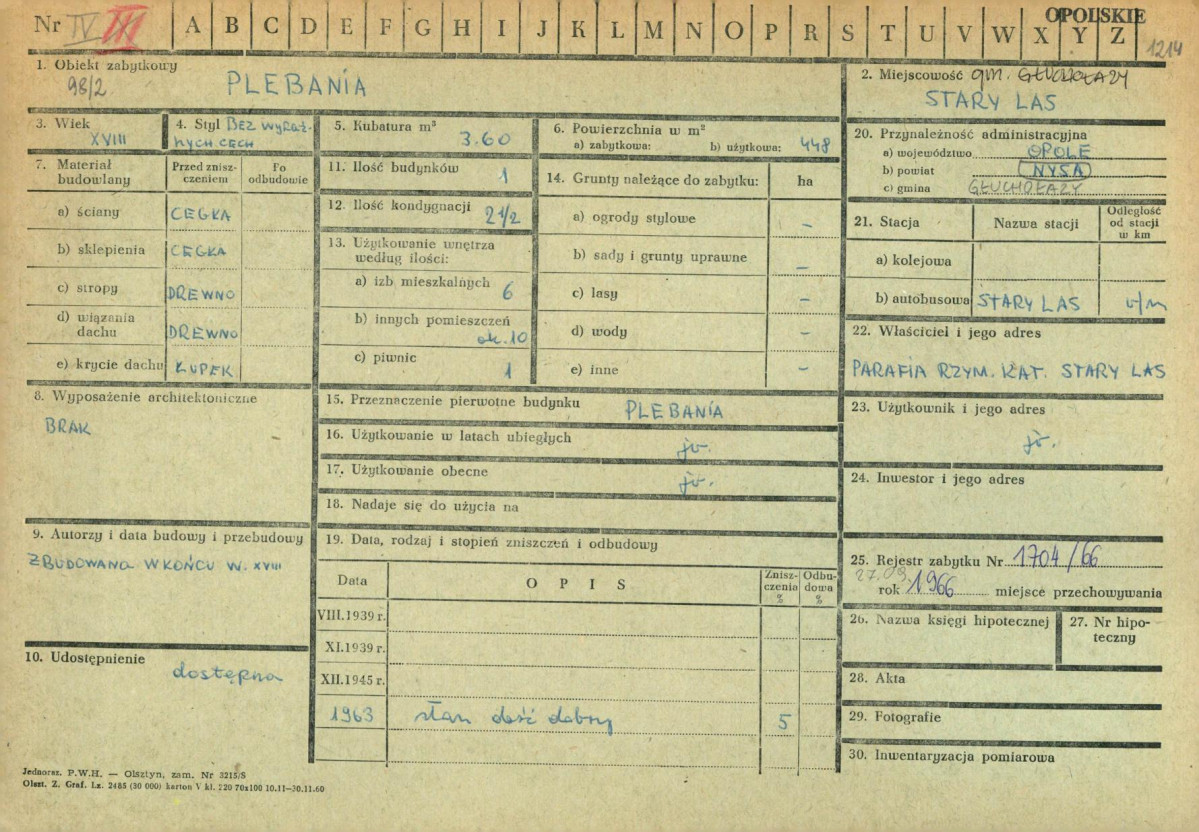 Nr IV III A B C D E F G H I J K L M N O P R S T U V W X Y Z OPOLSKIE
1214
1. Obiekt zabytkowy
98/2 PLEBANIA
2. Miejscowość gm. GŁUCHOŁAZY
STARY LAS
3. Wiek
XVIII
4. Styl BEZ WYRAŹ-
NYCH CECH
5. Kubatura m³
3.60
6. Powierzchnia w m²
a) zabytkowa: b) użytkowa: 448
7. Materiał
budowlany
Przed znisz-
czeniem
Po
odbudowie
a) ściany CEGŁA
b) sklepienia CEGŁA
c) stropy DREWNO
d) wiązania
dachu DREWNO
e) krycie dachu ŁUPEK
8. Wyposażenie architektoniczne
BRAK
9. Autorzy i data budowy i przebudowy
ZBUDOWANA W KOŃCU W. XVIII
10. Udostępnienie
dostępna
11. Ilość budynków
1
12. Ilość kondygnacji
2 1/2
13. Użytkowanie wnętrza
według ilości:
a) izb mieszkalnych
6
b) innych pomieszczeń
ok. 10
c) piwnic
1
14. Grunty należące do zabytku: ha
a) ogrody stylowe –
b) sady i grunty uprawne –
c) lasy –
d) wody –
e) inne –
15. Przeznaczenie pierwotne budynku PLEBANIA
16. Użytkowanie w latach ubiegłych jw.
17. Użytkowanie obecne jw.
18. Nadaje się do użycia na
19. Data, rodzaj i stopień zniszczeń i odbudowy
Data O P I S Znisz-
czenia
% Odbu-
dowa
%
VIII.1939 r.
XI.1939 r.
XII.1945 r.
1963 stan dość dobry 5
20. Przynależność administracyjna
a) województwo OPOLE
b) powiat NYSA
c) gmina GŁUCHOŁAZY
21. Stacja Nazwa stacji Odległość
od stacji
w km
a) kolejowa
b) autobusowa STARY LAS v/m
22. Właściciel i jego adres
PARAFIA RZYM. KAT. STARY LAS
23. Użytkownik i jego adres
jw.
24. Inwestor i jego adres
25. Rejestr zabytku Nr 1704/66
27.09.
rok 1966 miejsce przechowywania
26. Nazwa księgi hipotecznej
27. Nr hipo-
teczny
28. Akta
29. Fotografie
30. Inwentaryzacja pomiarowa
Jednoraz. P.W.H. — Olsztyn, zam. Nr 3215/S
Olszt. Z. Graf. Lz. 2485 (30 000) karton V kl. 220 70x100 10.11—30.11.60